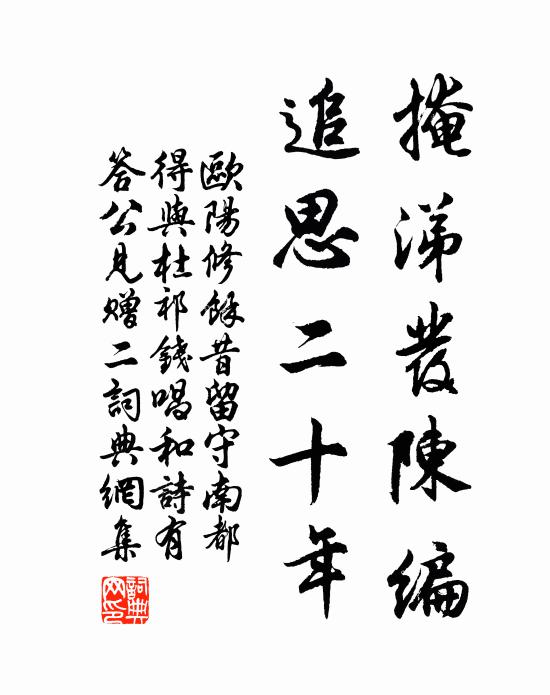 掩涕發陳編
追思二十年
歐陽修餘昔留守南都
得與杜祁錢唱和詩有
答公見贈二詞典網集
詞典網印